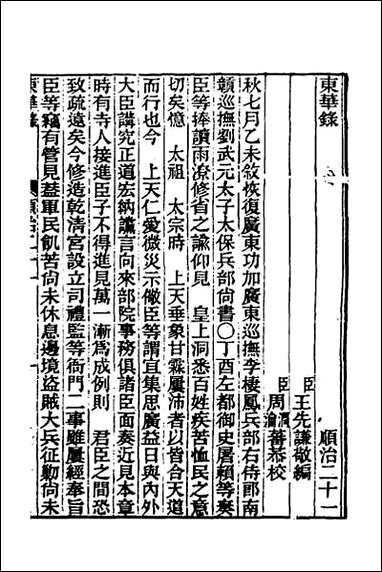 東華錄 順治二十一
臣王先謙敬編
臣周潤瀹蕃恭校
秋七月乙未敘恢復廣東功加廣東巡撫李棲鳳兵部右侍郎南
贛巡撫劉武元太子太保兵部尚書〇丁酉左都御史屠賴等奏
臣等捧讀雨潦修省之諭仰見 皇上洞悉百姓疾苦恤民之意
切矣憶 太祖 太宗時 上天垂象甘霖屢沛者以皆合天道
而行也今 上天仁愛微災示儆臣等謂宜集思廣益日與內外
大臣講究正道宏納讜言向來部院事務俱諸臣面奏近見本章
時有寺人接進臣子不得進見萬一漸為成例則 君臣之間恐
致疏遠矣今修造乾清宮設立司禮監等衙門二事雖屢經奉旨
臣等竊有管見蓋軍民飢苦尚未休息邊境盜賊大兵征勦尚未
東華錄